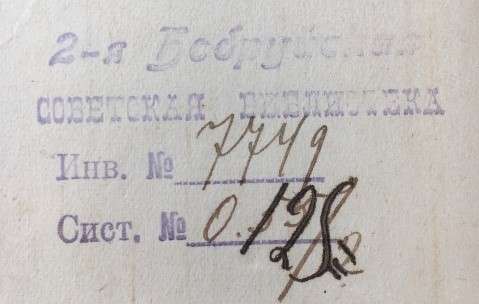 2-я Бобруйская
СОВЕТСКАЯ БИБЛИОТЕКА
Инв. № 7749
Сист. №